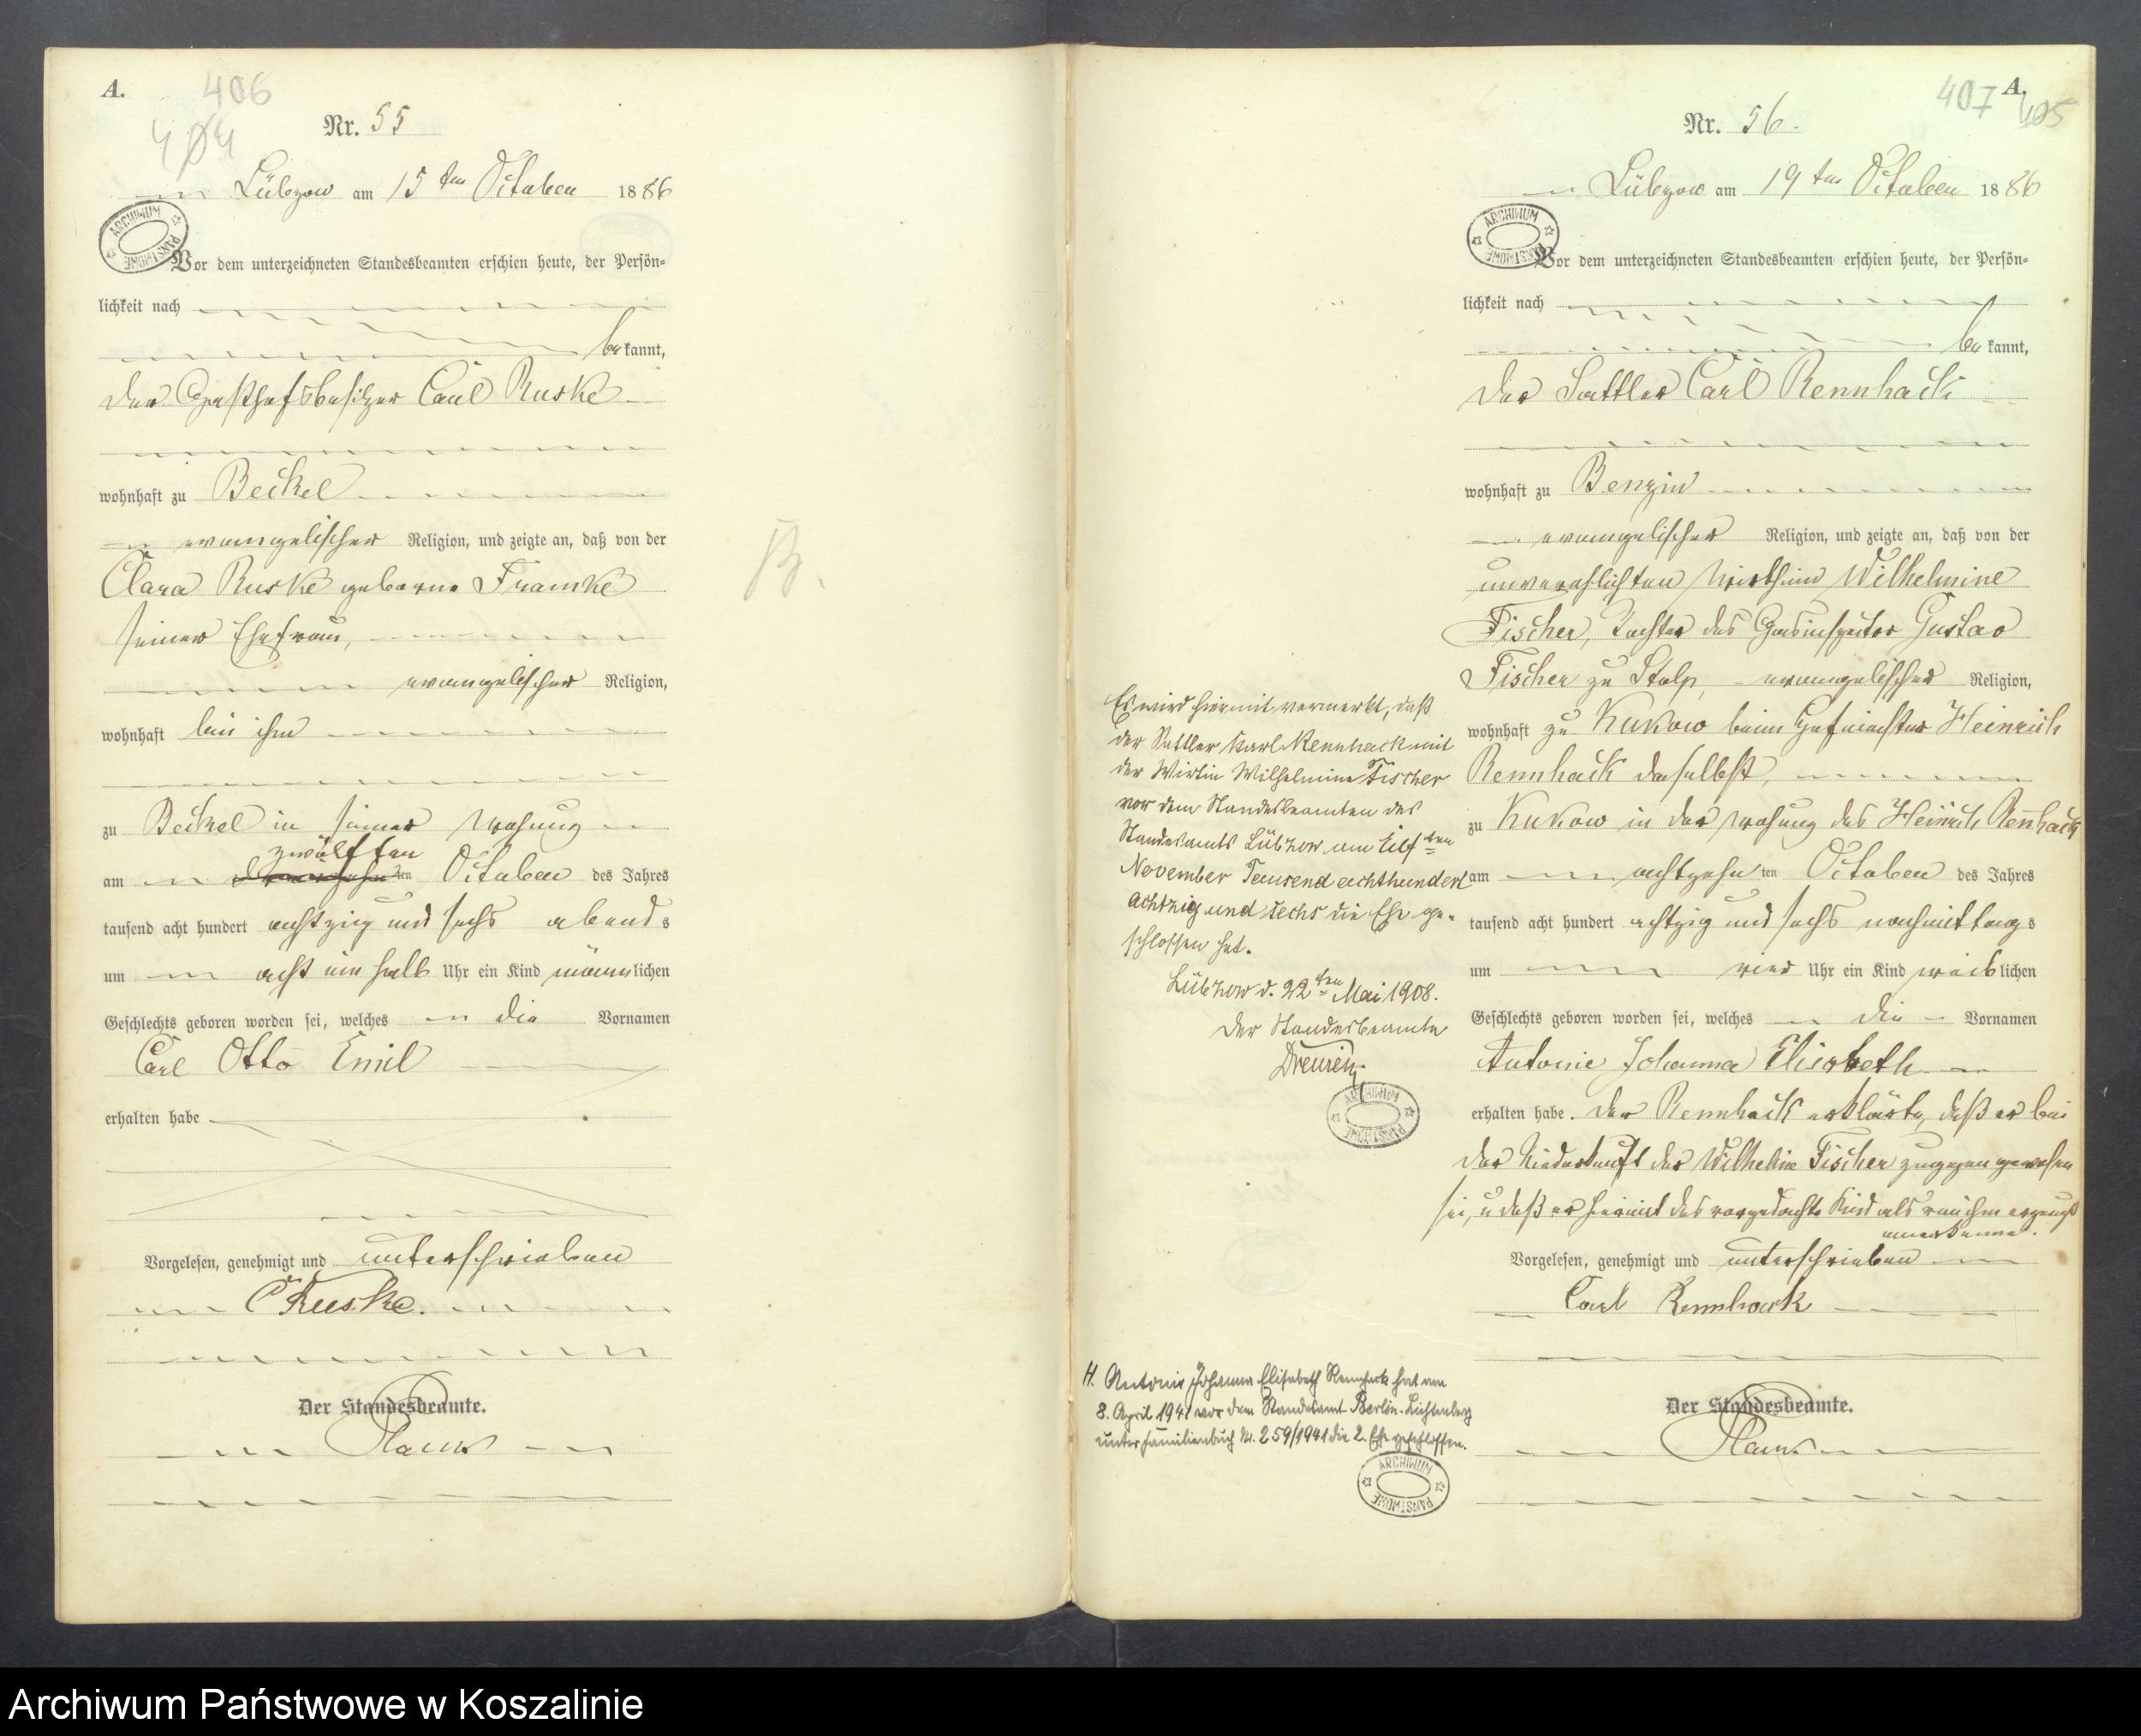 A.
406
404
Nr. 55
Lübzow am 15ten October 1886
ARCHIWUM PAŃSTWOWE
Vor dem unterzeichneten Standesbeamten erschien heute, der Persön-
lichkeit nach
bekannt,
der Gasthofsbesitzer Carl Ruske
wohnhaft zu Beckel
evangelischer Religion, und zeigte an, daß von der
Clara Ruske geborne Framke
seiner Ehefrau,
evangelischer Religion,
wohnhaft bei ihm
zu Beckel in seiner Wohnung
zwölften
am ten October des Jahres
tausend acht hundert achtzig und sechs abends
um acht ein halb Uhr ein Kind männlichen
Geschlechts geboren worden sei, welches die Vornamen
Carl Otto Emil
erhalten habe
Vorgelesen, genehmigt und unterschrieben
C Ruske.
Der Standesbeamte.
B.
A.
407
405
Nr. 56.
Lübzow am 19ten October 1886
ARCHIWUM PAŃSTWOWE
Vor dem unterzeichneten Standesbeamten erschien heute, der Persön-
lichkeit nach
bekannt,
der Sattler Carl Rennhack
wohnhaft zu Benzin
evangelischer Religion, und zeigte an, daß von der
unverehlichten Wirthin Wilhelmine
Fischer, Tochter des Gasinspector Gustav
Fischer zu Stolp, evangelischer Religion,
wohnhaft zu Kukow beim Hofmeister Heinrich
Rennhack daselbst,
zu Kukow in der Wohnung des Heinrich Rennhack
am achtzehnten October des Jahres
tausend acht hundert achtzig und sechs nachmittags
um vier Uhr ein Kind weiblichen
Geschlechts geboren worden sei, welches die Vornamen
Antonie Johanna Elisabeth
erhalten habe. Der Rennhack erklärte, daß er bei
der Niederkunft der Wilhelmine Fischer zugegen gewesen
sei, u daß er hiermit das vorgedachte Kind als von ihm erzeugt
anerkenne.
Vorgelesen, genehmigt und unterschrieben
Carl Rennhack
Der Standesbeamte.
Es wird hiermit vermerkt, daß
der Sattler Karl Rennhack mit
der Wirtin Wilhelmine Fischer
vor dem Standesbeamten des
Standesamts Lübzow am Elften
November Tausend achthundert
achtzig und sechs die Ehe ge-
schlossen hat.
Lübzow d. 22ten Mai 1908.
Der Standesbeamte
ARCHIWUM PAŃSTWOWE
H. Antonie Johanna Elisabeth Rennhack hat am
8. April 1941 vor dem Standesamt Berlin-Lichtenberg
unter Familienbuch Nr. 259/1941 die 2. Ehe geschlossen.
ARCHIWUM PAŃSTWOWE
Archiwum Państwowe w Koszalinie